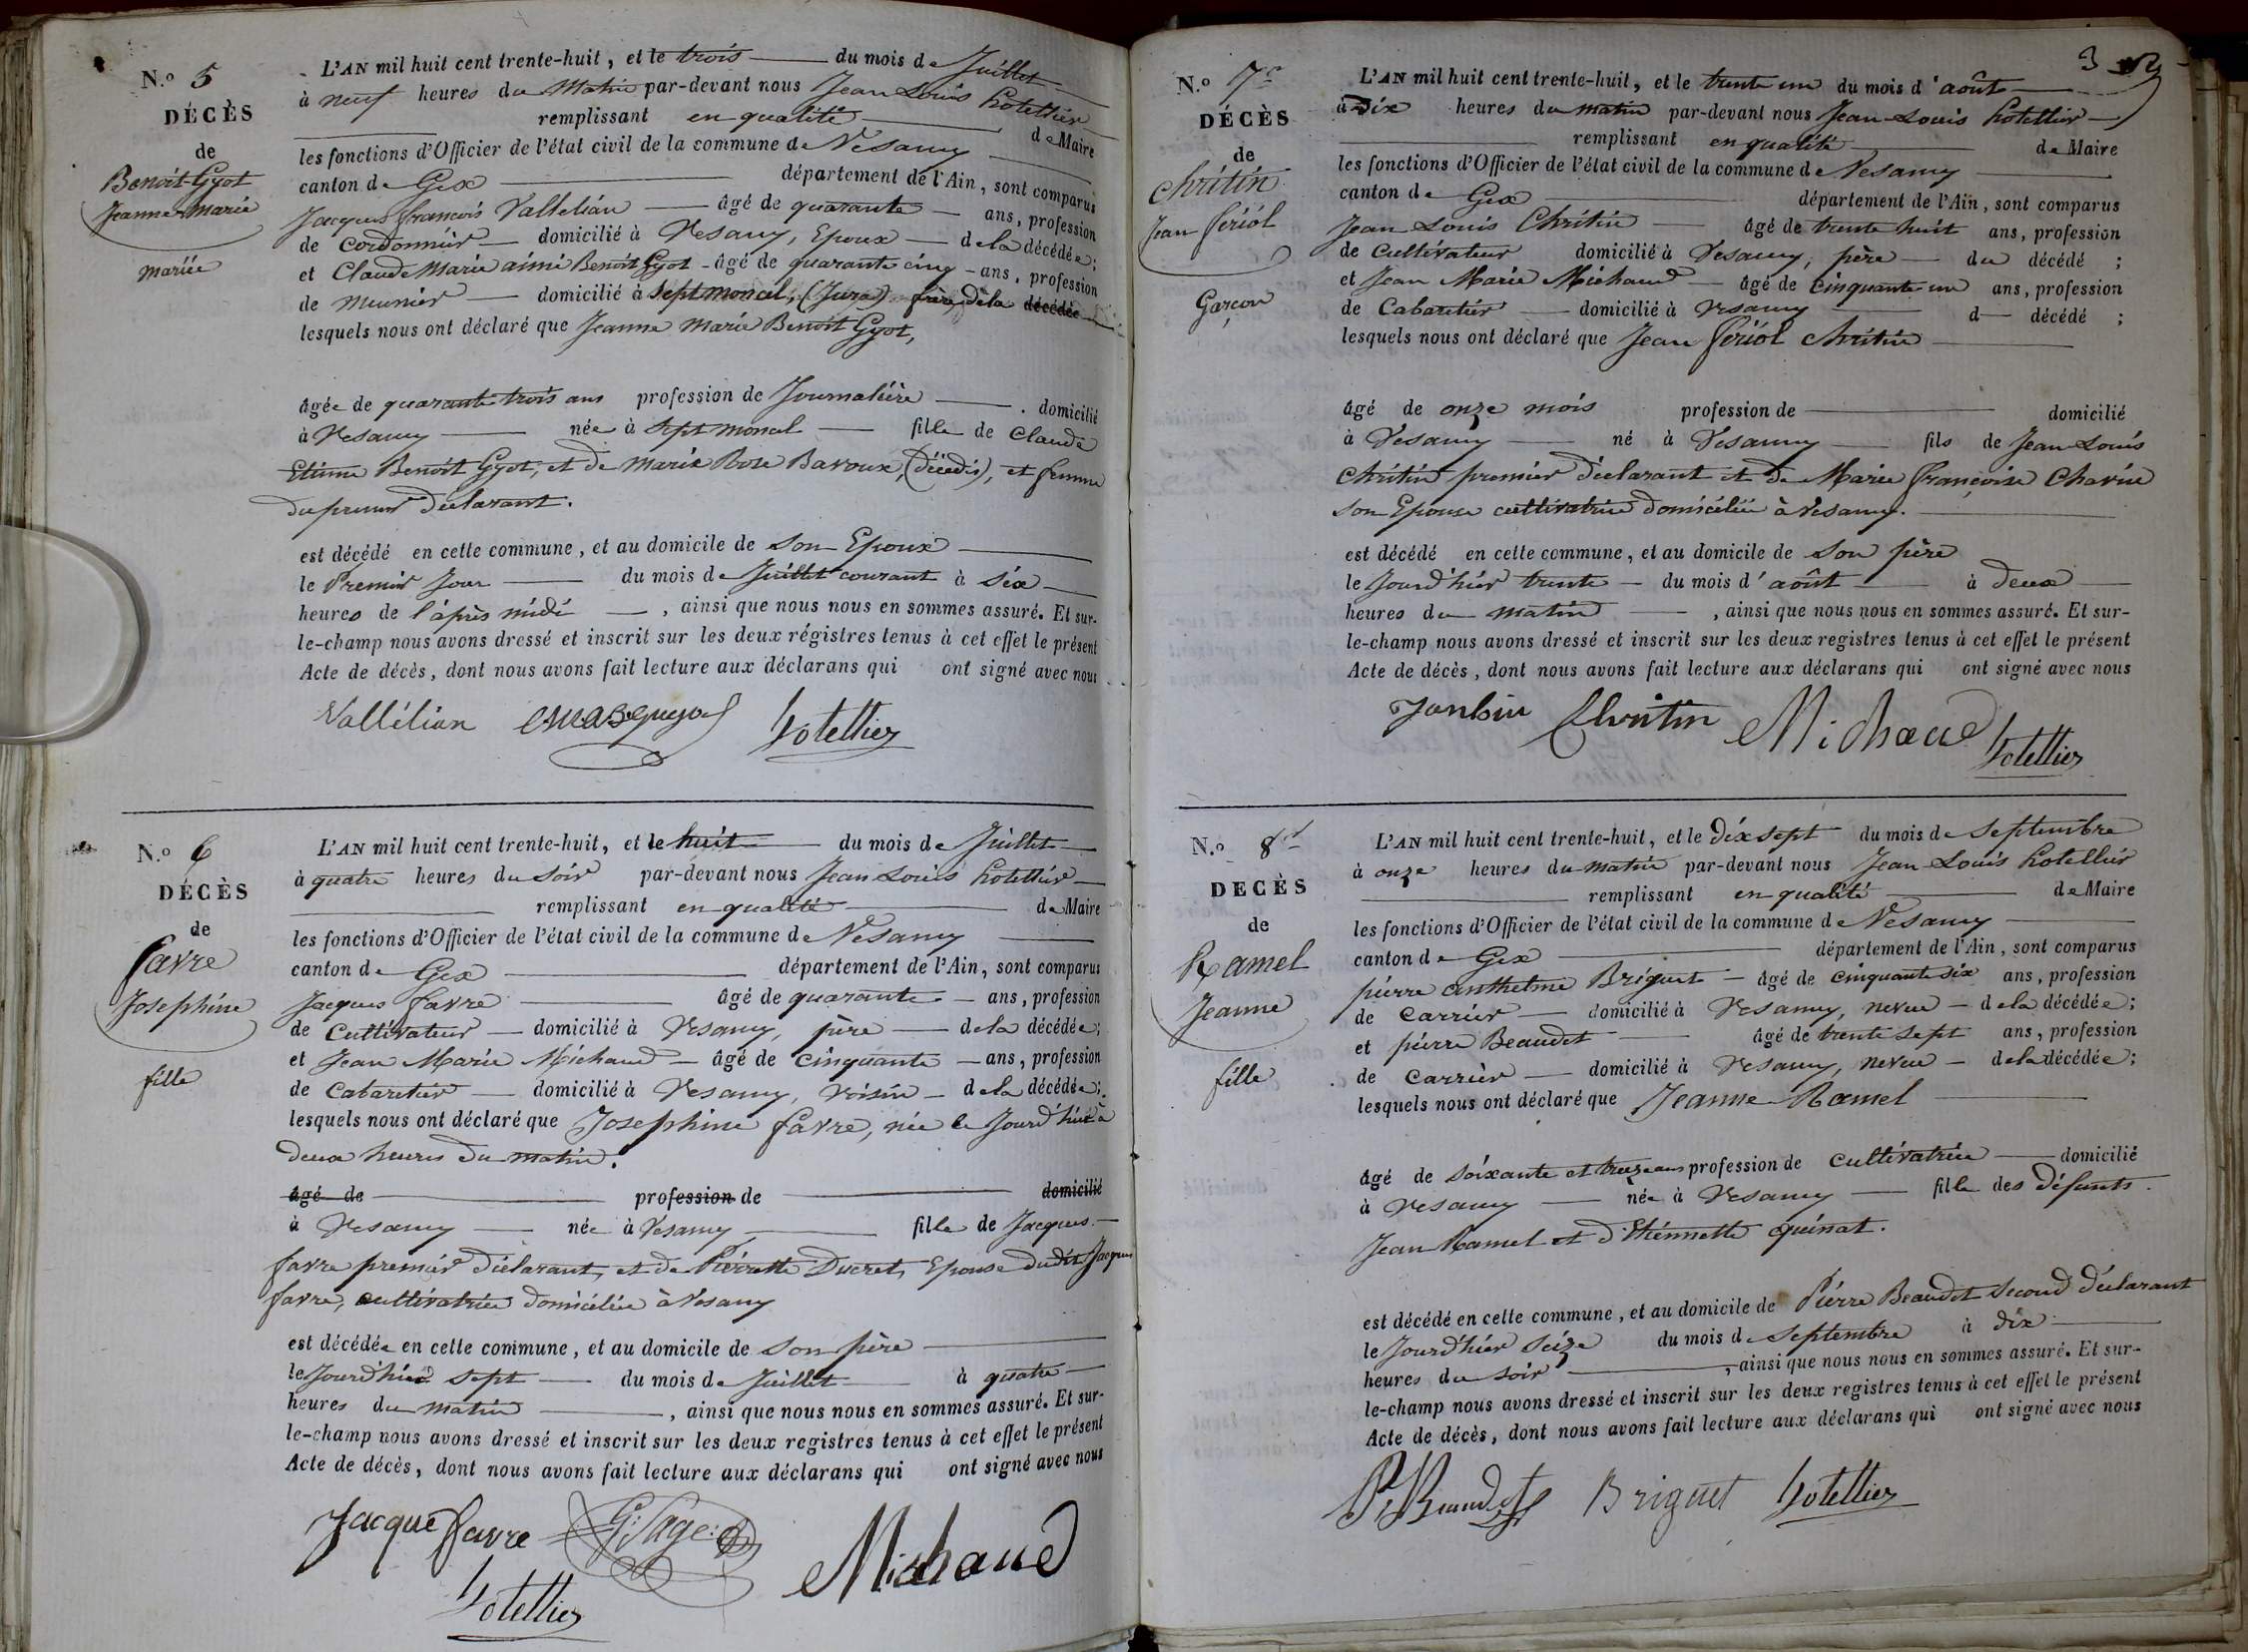 N.o 5
DÉCÈS
de
Benoit Gyot
Jeanne Marie
mariée
L'AN mil huit cent trente-huit, et le trois du mois de Juillet
à neuf heures du Matin par-devant nous Jean Louis hotellier
remplissant en qualité de Maire
les fonctions d'Officier de l'état civil de la commune de Vesancy
canton de Gex département de l'Ain, sont comparus
Jacques françois Vallelian âgé de quarante ans, profession
de cordonnier domicilié à Vesancy, Epoux de la décédée;
et Claude Marie aimé Benoit Gyot âgé de quarante cinq ans, profession
de meunier domicilié à Septmoncel, (Jura) frère, dela décédée
lesquels nous ont déclaré que Jeanne Marie Benoit Gyot,
âgée de quarante trois ans profession de Journalière domicilié
à Vesancy née à Septmoncel fille de Claude
Etienne Benoit Gyot, et de Marie Rose Baroux, (décédés), et femme
du premier déclarant.
est décédé en cette commune, et au domicile de son Epoux
le Premier Jour du mois de Juillet courant à six
heures de l'après midi, ainsi que nous nous en sommes assuré. Et sur-
le-champ nous avons dressé et inscrit sur les deux régistres tenus à cet effet le présent
Acte de décès, dont nous avons fait lecture aux déclarans qui ont signé avec nous
Vallélian hotellier
N.o 6
DÉCÈS
de
favre
Josephine
fille
L'AN mil huit cent trente-huit, et le huit du mois de Juillet
à quatre heures du soir par-devant nous Jean Louis hotellier
remplissant en qualité de Maire
les fonctions d'Officier de l'état civil de la commune de Vesancy
canton de Gex département de l'Ain, sont comparus
Jacques favre âgé de quarante ans, profession
de Cultivateur domicilié à Vesancy, père de la décédée;
et Jean Marie Michaud âgé de cinquante ans, profession
de Cabaretier domicilié à Vesancy, voisin de la décédée;
lesquels nous ont déclaré que Josephine favre, née le Jourd'hier à
deux heures du matin.
âgé de profession de domicilié
à Vesancy née à Vesancy fille de Jacques
favre premier déclarant, et de Pierrette Ducret, Epouse dudit Jacques
favre, cultivatrice domiciliée à Vesancy
est décédée en cette commune, et au domicile de son père
le Jourd'hier sept du mois de Juillet à quatre
heures du matin, ainsi que nous nous en sommes assuré. Et sur-
le-champ nous avons dressé et inscrit sur les deux registres tenus à cet effet le présent
Acte de décès, dont nous avons fait lecture aux déclarans qui ont signé avec nous
Jacque favre Michaud
hotellier
3
N.o 7
DÉCÈS
de
Chritin
Jean fériol
Garçon
L'AN mil huit cent trente-huit, et le trente un du mois d'août
à dix heures du matin par-devant nous Jean Louis hotellier
remplissant en qualité de Maire
les fonctions d'Officier de l'état civil de la commune de Vesancy
canton de Gex département de l'Ain, sont comparus
Jean Louis Chritin âgé de trente huit ans, profession
de Cultivateur domicilié à Vesancy, père du décédé ;
et Jean Marie Michaud âgé de cinquante un ans, profession
de Cabaretier domicilié à Vesancy d décédé ;
lesquels nous ont déclaré que Jean fériol chritin
âgé de onze mois profession de domicilié
à Vesancy né à Vesancy fils de Jean Louis
chritin premier déclarant et de Marie françoise Charin
son Epouse cultivatrice domiciliée à Vesancy.
est décédé en cette commune, et au domicile de son père
le Jourd'hier trente du mois d'août à deux
heures du matin, ainsi que nous nous en sommes assuré. Et sur-
le-champ nous avons dressé et inscrit sur les deux registres tenus à cet effet le présent
Acte de décès, dont nous avons fait lecture aux déclarans qui ont signé avec nous
Chritin Michaud hotellier
N.o 8
DÉCÈS
de
Ramel
Jeanne
fille
L'AN mil huit cent trente-huit, et le dix sept du mois de septembre
à onze heures du matin par-devant nous Jean Louis hotellier
remplissant en qualité de Maire
les fonctions d'Officier de l'état civil de la commune de Vesancy
canton de Gex département de l'Ain, sont comparus
pierre anthelme Briguet âgé de cinquante six ans, profession
de carrier domicilié à Vesancy, neveu de la décédée;
et pierre Beaudet âgé de trente sept ans, profession
de carrier domicilié à Vesancy, neveu de la décédée;
lesquels nous ont déclaré que Jeanne Ramel
âgé de soixante et treize ans profession de cultivatrice domicilié
à Vesancy née à Vesancy fille des défunts
Jean Ramel et d'Etiennette quinat.
est décédé en cette commune, et au domicile de Pierre Beaudet second déclarant
le Jourd'hier seize du mois de septembre à dix
heures du soir, ainsi que nous nous en sommes assuré. Et sur-
le-champ nous avons dressé et inscrit sur les deux registres tenus à cet effet le présent
Acte de décès, dont nous avons fait lecture aux déclarans qui ont signé avec nous
P. Beaudet Briguet hotellier